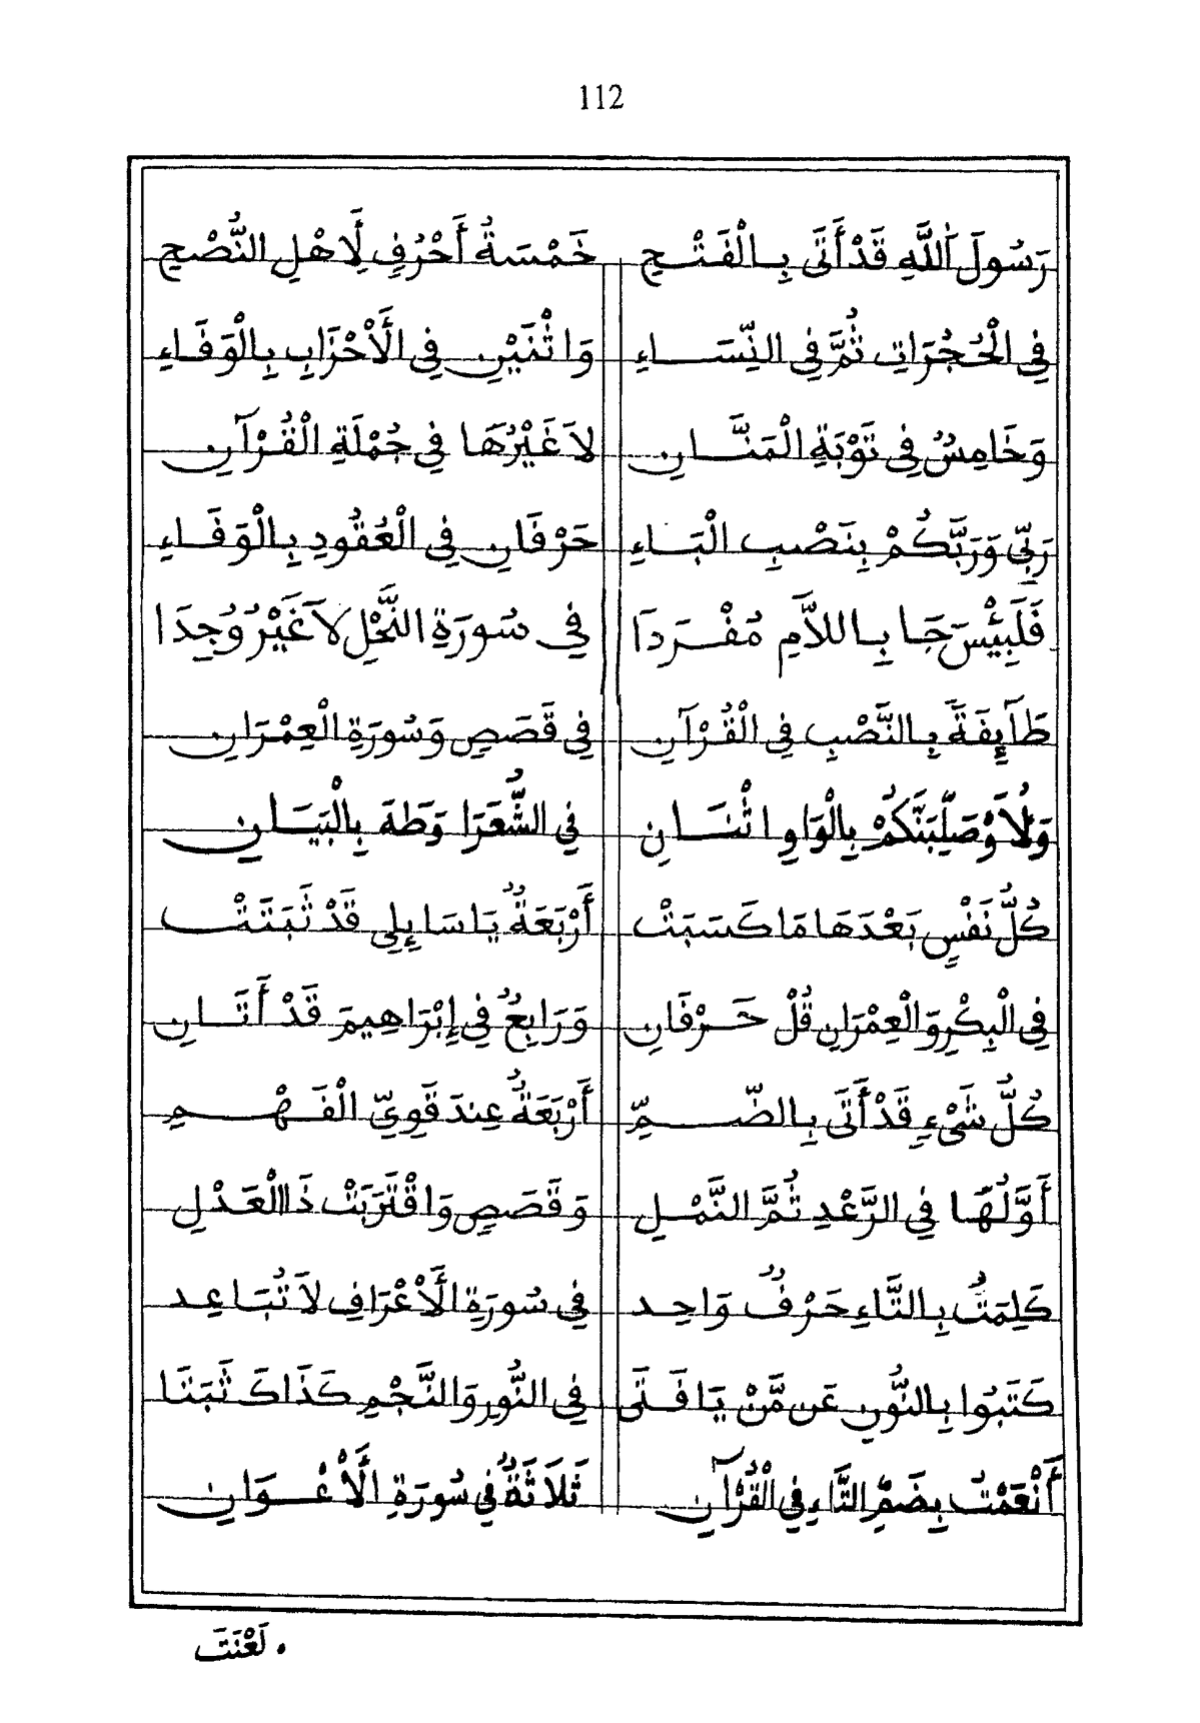 112
رَسُولَ اَللَّهِ قَدْ أَتَى بِالْفَتْحِ خَمْسَةُ أَحْرُفٍ لِأَهْلِ النُّصْحِ
فِي الْحُجُرَاتِ ثُمَّ فِي النِّسَاءِ وَاثْنَيْنِ فِي الَأَحْزَابِ بِالْوَفَاءِ
وَخَامِسٌ فِي تَوْبَةِ الْمَنَّانِ لاَ غَيْرُهَا فِي جُمْلَةِ الْقُرْآنِ
رَبِّي وَرَبَّكُمْ بِنَصْبِ الْبَاءِ حَرْفَانِ فِي الْعُقُودِ بِالْوَفَاءِ
فَلَبِئْسَ جَا بِاللاَّمِ مُفْرَدَا فِي سُورَةِ النَّحْلِ لاَ غَيْرُ وُجِدَا
طَآئِفَةً بِالنَّصْبِ فِي الْقُرْآنِ فِي قَصَصٍ وَسُورَةِ الْعِمْرَانِ
وَلَأُوصَلِّبَنَّكُمْ بِالْوَاوِ اثْنَانِ فِي الشُّعَرَا وَطَهَ بِالْبَيَانِ
كُلُّ نَفْسٍ بَعْدَهَا مَا كَسَبَتْ أَرْبَعَةٌ يَا سَائِلِي قَدْ ثَبَتَتْ
فِي الْبِكْرِ وَالْعِمْرَانِ قُلْ حَرْفَانِ وَرَابِعٌ فِي إِبْرَاهِيمَ قَدْ أَتَانِ
كُلُّ شَيْءٍ قَدْ أَتَى بِالضَّمِّ أَرْبَعَةٌ عِندَ قَوِيِّ الْفَهْمِ
أَوَّلُهَا فِي الرَّعْدِ ثُمَّ النَّمْلِ وَقَصَصٍ وَاقْتَرَبَتْ ذَا الْعَدْلِ
كَلِمَتُ بِالتَّاءِ حَرْفٌ وَاحِد فِي سُورَةِ الَأَعْرَافِ لاَ تُبَاعِد
كَتَبُوا بِالنُّونِ عَن مَّنْ يَا فَتَى فِي النُّورِ وَالنَّجْمِ كَذَاكَ ثَبَتَا
أَنْعَمْتُ بِضَمِّ التَّاءِ فِي الْقُرْآنِ ثَلاَثَةٌ فِي سُورَةِ الَأَعْوَانِ
لَعْنَتَ